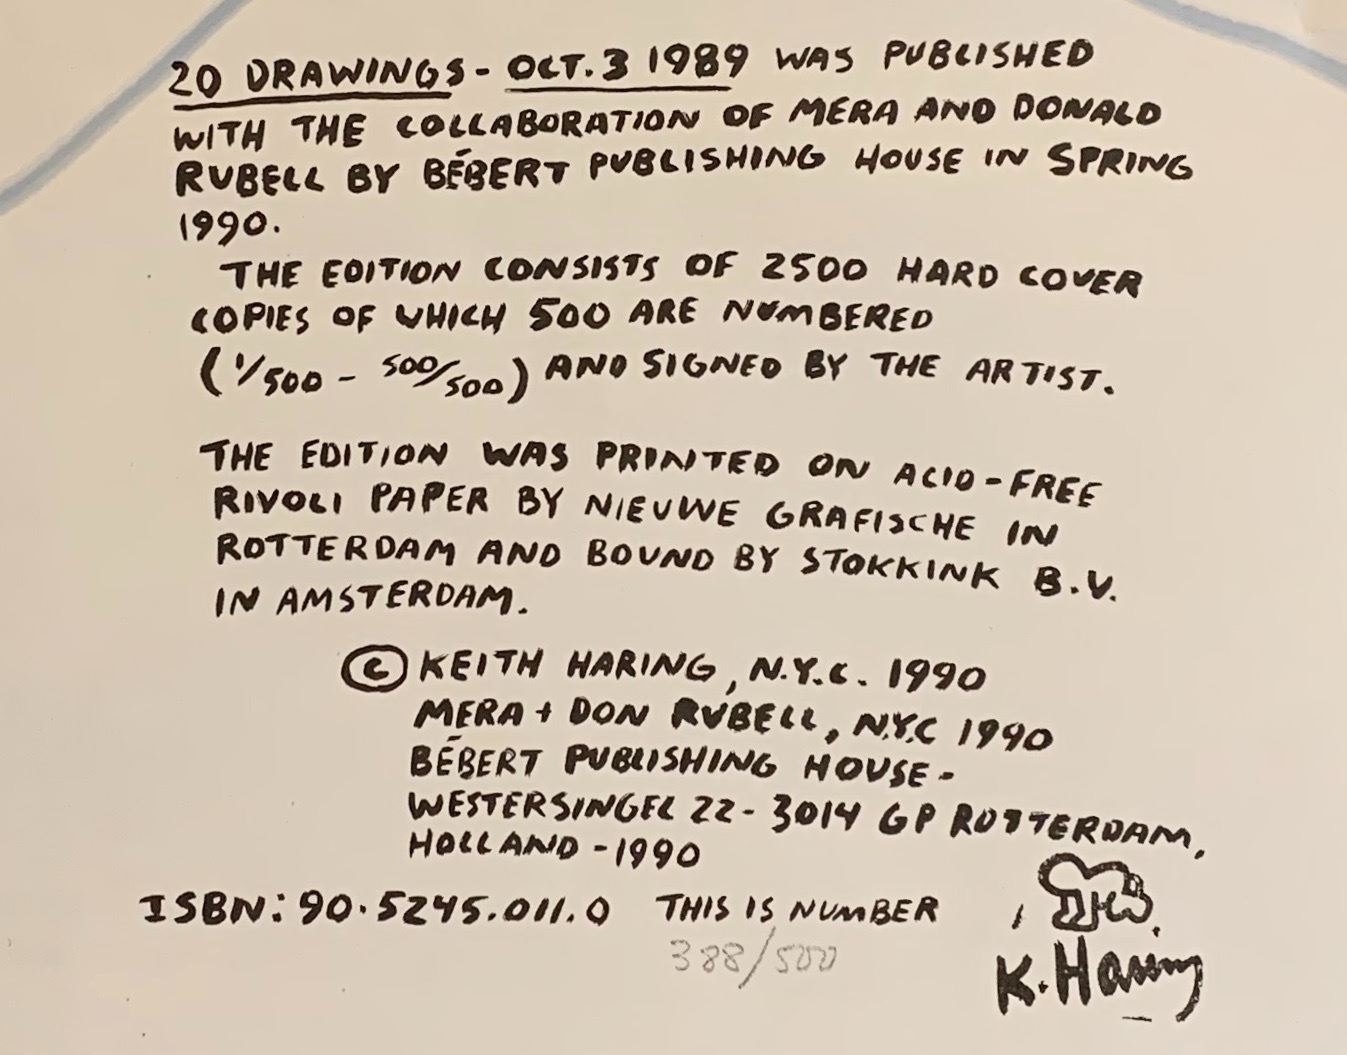 20 DRAWINGS - OCT. 3 1989 WAS PUBLISHED
WITH THE COLLABORATION OF MERA AND DONALD
RUBELL BY BÉBERT PUBLISHING HOUSE IN SPRING
1990.
THE EDITION CONSISTS OF 2500 HARD COVER
COPIES OF WHICH 500 ARE NUMBERED
(1/500 - 500/500) AND SIGNED BY THE ARTIST.
THE EDITION WAS PRINTED ON ACID-FREE
RIVOLI PAPER BY NIEUWE GRAFISCHE IN
ROTTERDAM AND BOUND BY STOKKINK B.V.
IN AMSTERDAM.
© KEITH HARING, N.Y.C. 1990
MERA + DON RUBELL, N.Y.C 1990
BÉBERT PUBLISHING HOUSE -
WESTERSINGEL 22 - 3014 GP ROTTERDAM,
HOLLAND - 1990
ISBN: 90.5245.011.0 THIS IS NUMBER
388/500
K. Haring